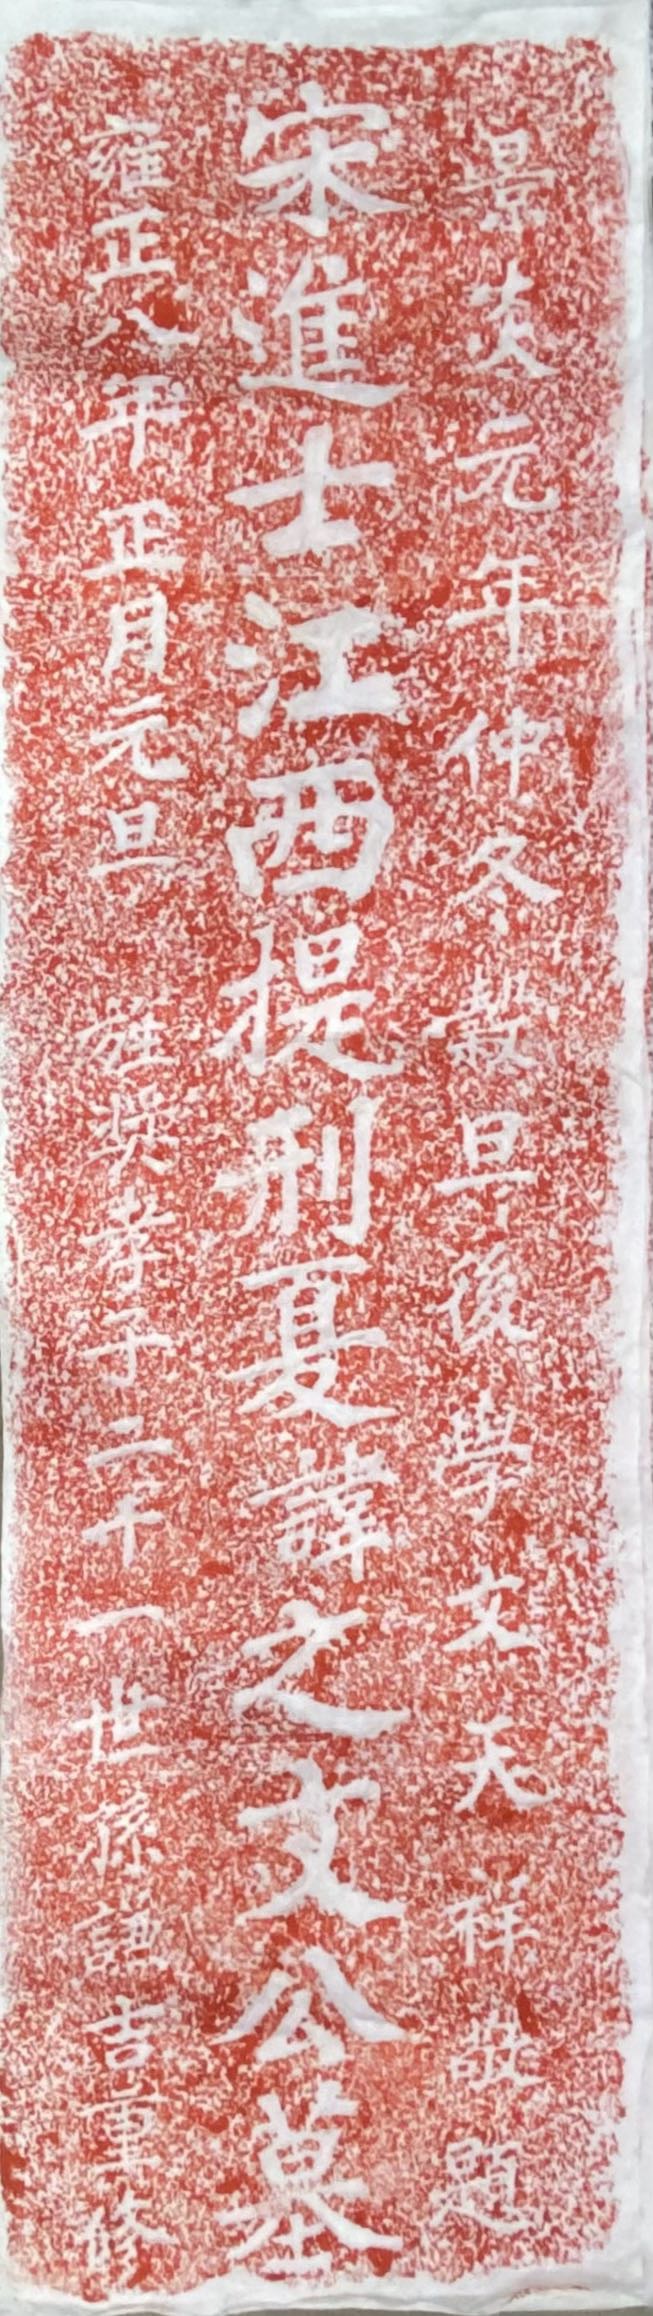 景炎元年仲冬穀旦後學文天祥敬題
宋進士江西提刑夏諱之文公墓
雍正八年正月元旦 旌獎孝子二十一世孫謙吉重修